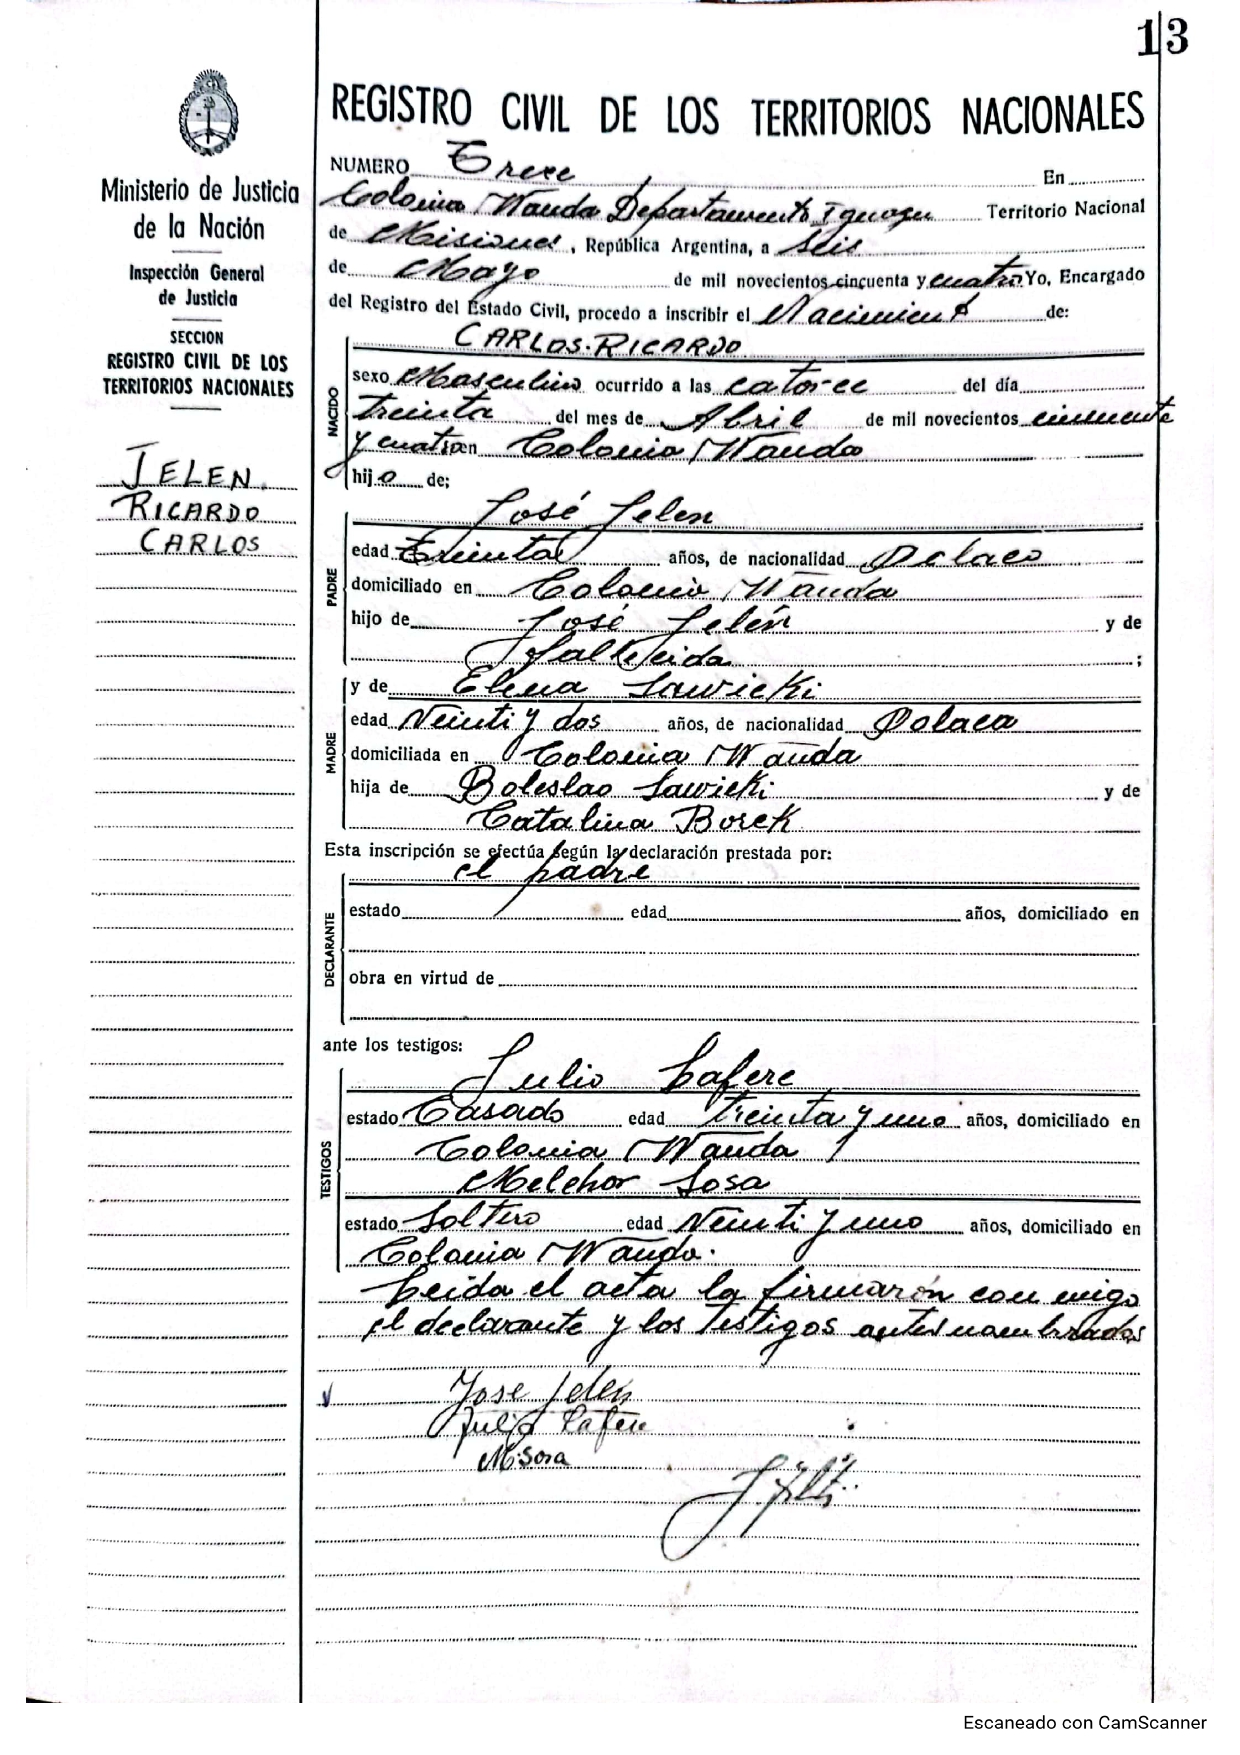 13
REGISTRO CIVIL DE LOS TERRITORIOS NACIONALES
Ministerio de Justicia
de la Nación
Inspección General
de Justicia
SECCION
REGISTRO CIVIL DE LOS
TERRITORIOS NACIONALES
JELEN.
RICARDO
CARLOS
NUMERO Trece En
Colonia Wanda Departamento Iguazu Territorio Nacional
de Misiones, República Argentina, a seis
de Mayo de mil novecientos cincuenta y cuatro Yo, Encargado
del Registro del Estado Civil, procedo a inscribir el Nacimiento de:
CARLOS.RICARDO
NACIDO
sexo Masculino ocurrido a las catorce del día
treinta del mes de Abril de mil novecientos cincuenta
y cuatro en Colonia Wanda
hijo de;
José Jelen
PADRE
edad Treinta años, de nacionalidad Polaco
domiciliado en Colonia Wanda
hijo de José Jelén y de
;
MADRE
y de Elena Sawicki
edad Veinti y dos años, de nacionalidad Polaca
domiciliada en Colonia Wanda
hija de Boleslao Sawicki y de
Catalina Borek
Esta inscripción se efectúa según la declaración prestada por:
el padre
DECLARANTE
estado edad años, domiciliado en
obra en virtud de
ante los testigos:
Julio Lafere
TESTIGOS
estado Casado edad treinta y uno años, domiciliado en
Colonia Wanda
Melchor Sosa
estado Soltero edad Veinti y uno años, domiciliado en
Colonia Wanda.
Leida el acta la firmarón con migo
el declarante y los testigos antes nombrados
Jose Jelen
Julio Lafere
M. Sosa
Escaneado con CamScanner